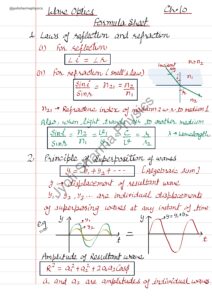 @jyotisharmaphysics
Wave Optics
Ch-10
Formula Sheet
1. Laws of reflection and refraction
(i) For reflection
∠i = ∠r
(ii) For refraction (Snell's law)
sini/sinr = n21 = n2/n1
n21 → Refractive index of medium 2 w.r. to medium 1
Also, when light travels from one to another medium
sini/sinr = n2/n1
λ → wavelength
2. Principle of Superposition of waves
y = y1 + y2 + ---
[Algebraic sum]
y → Displacement of resultant wave
y1, y2, y3 --- are individual displacements
of superposing waves at any instant of time
Amplitude of Resultant wave
R² = a1² + a2² + 2a1a2cosϕ
a1 and a2 are amplitudes of individual waves